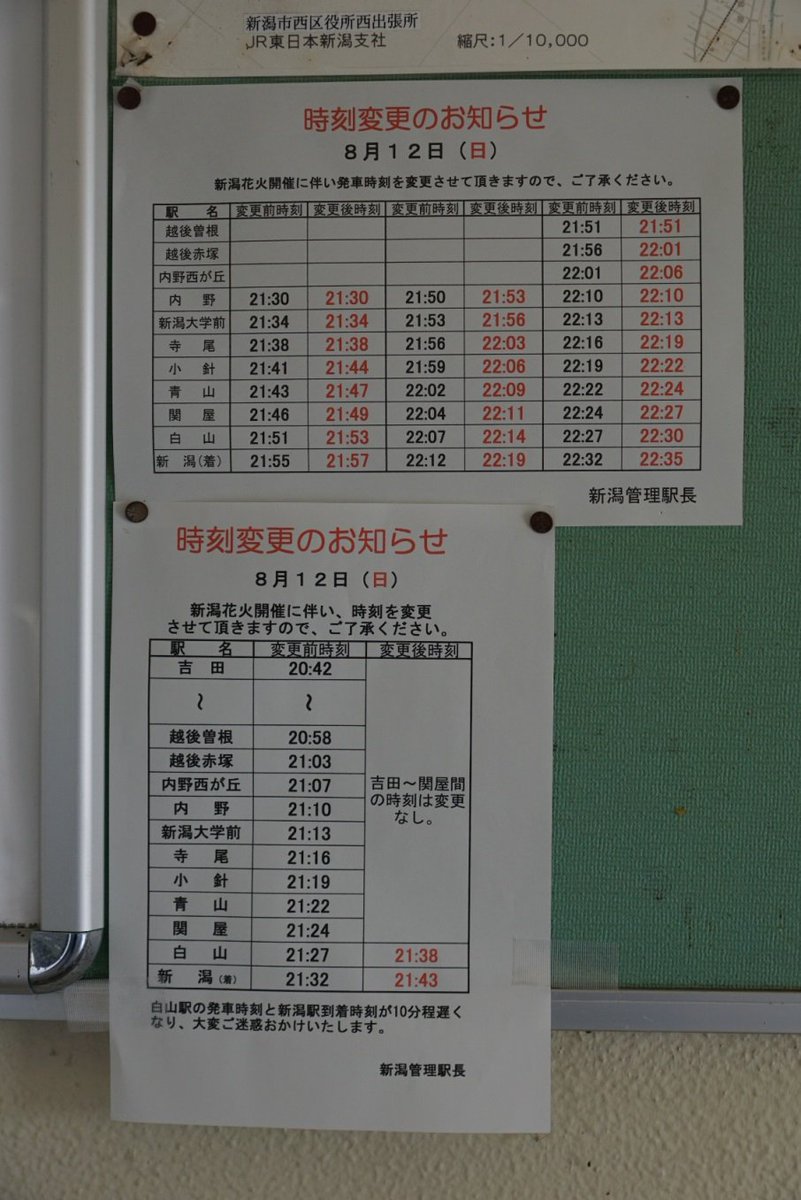 新潟市西区役所西出張所
JR東日本新潟支社 縮尺:1/10,000
時刻変更のお知らせ
8月12日(日)
新潟花火開催に伴い発車時刻を変更させて頂きますので、ご了承ください。
駅 名 変更前時刻 変更後時刻 変更前時刻 変更後時刻 変更前時刻 変更後時刻
越後曽根 21:51 21:51
越後赤塚 21:56 22:01
内野西が丘 22:01 22:06
内 野 21:30 21:30 21:50 21:53 22:10 22:10
新潟大学前 21:34 21:34 21:53 21:56 22:13 22:13
寺 尾 21:38 21:38 21:56 22:03 22:16 22:19
小 針 21:41 21:44 21:59 22:06 22:19 22:22
青 山 21:43 21:47 22:02 22:09 22:22 22:24
関 屋 21:46 21:49 22:04 22:11 22:24 22:27
白 山 21:51 21:53 22:07 22:14 22:27 22:30
新 潟(着) 21:55 21:57 22:12 22:19 22:32 22:35
新潟管理駅長
時刻変更のお知らせ
8月12日(日)
新潟花火開催に伴い、時刻を変更
させて頂きますので、ご了承ください。
駅 名 変更前時刻 変更後時刻
吉 田 20:42
~ ~
越後曽根 20:58
越後赤塚 21:03
内野西が丘 21:07
吉田~関屋間
の時刻は変更
なし。
内 野 21:10
新潟大学前 21:13
寺 尾 21:16
小 針 21:19
青 山 21:22
関 屋 21:24
白 山 21:27 21:38
新 潟(着) 21:32 21:43
白山駅の発車時刻と新潟駅到着時刻が10分程遅く
なり、大変ご迷惑おかけいたします。
新潟管理駅長